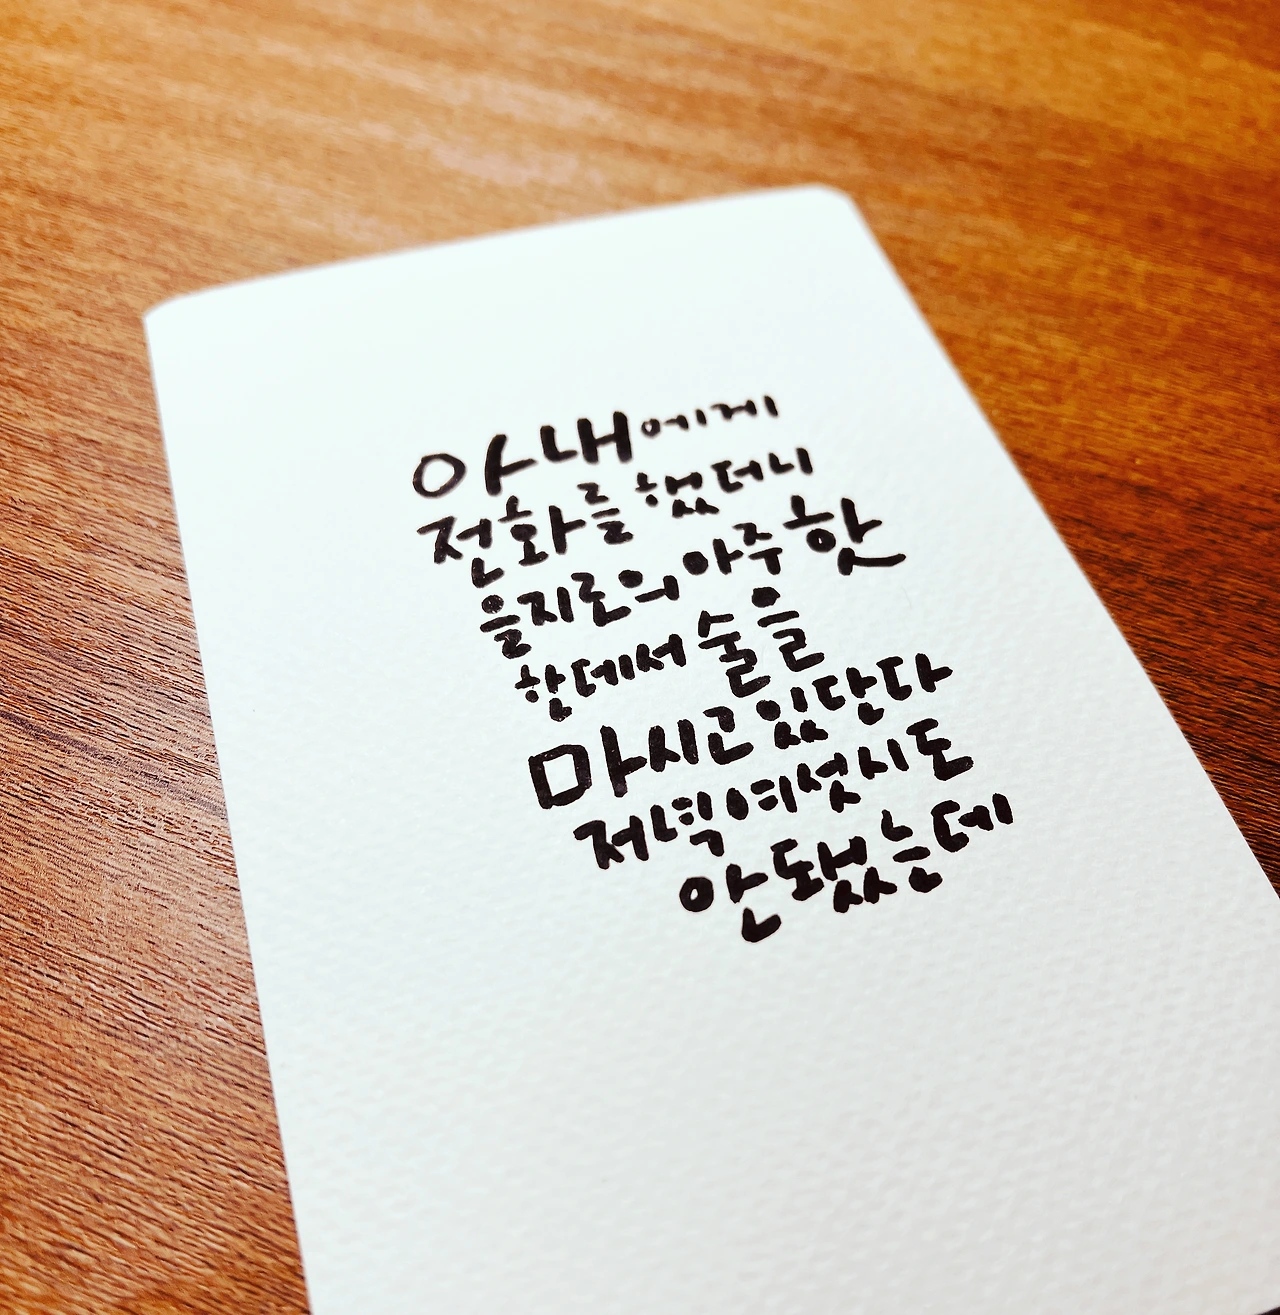 아내에게
전화를 했더니
을지로의 아주 핫
한데서 술을
마시고 있단다
저녁 여섯시도
안 됐는데